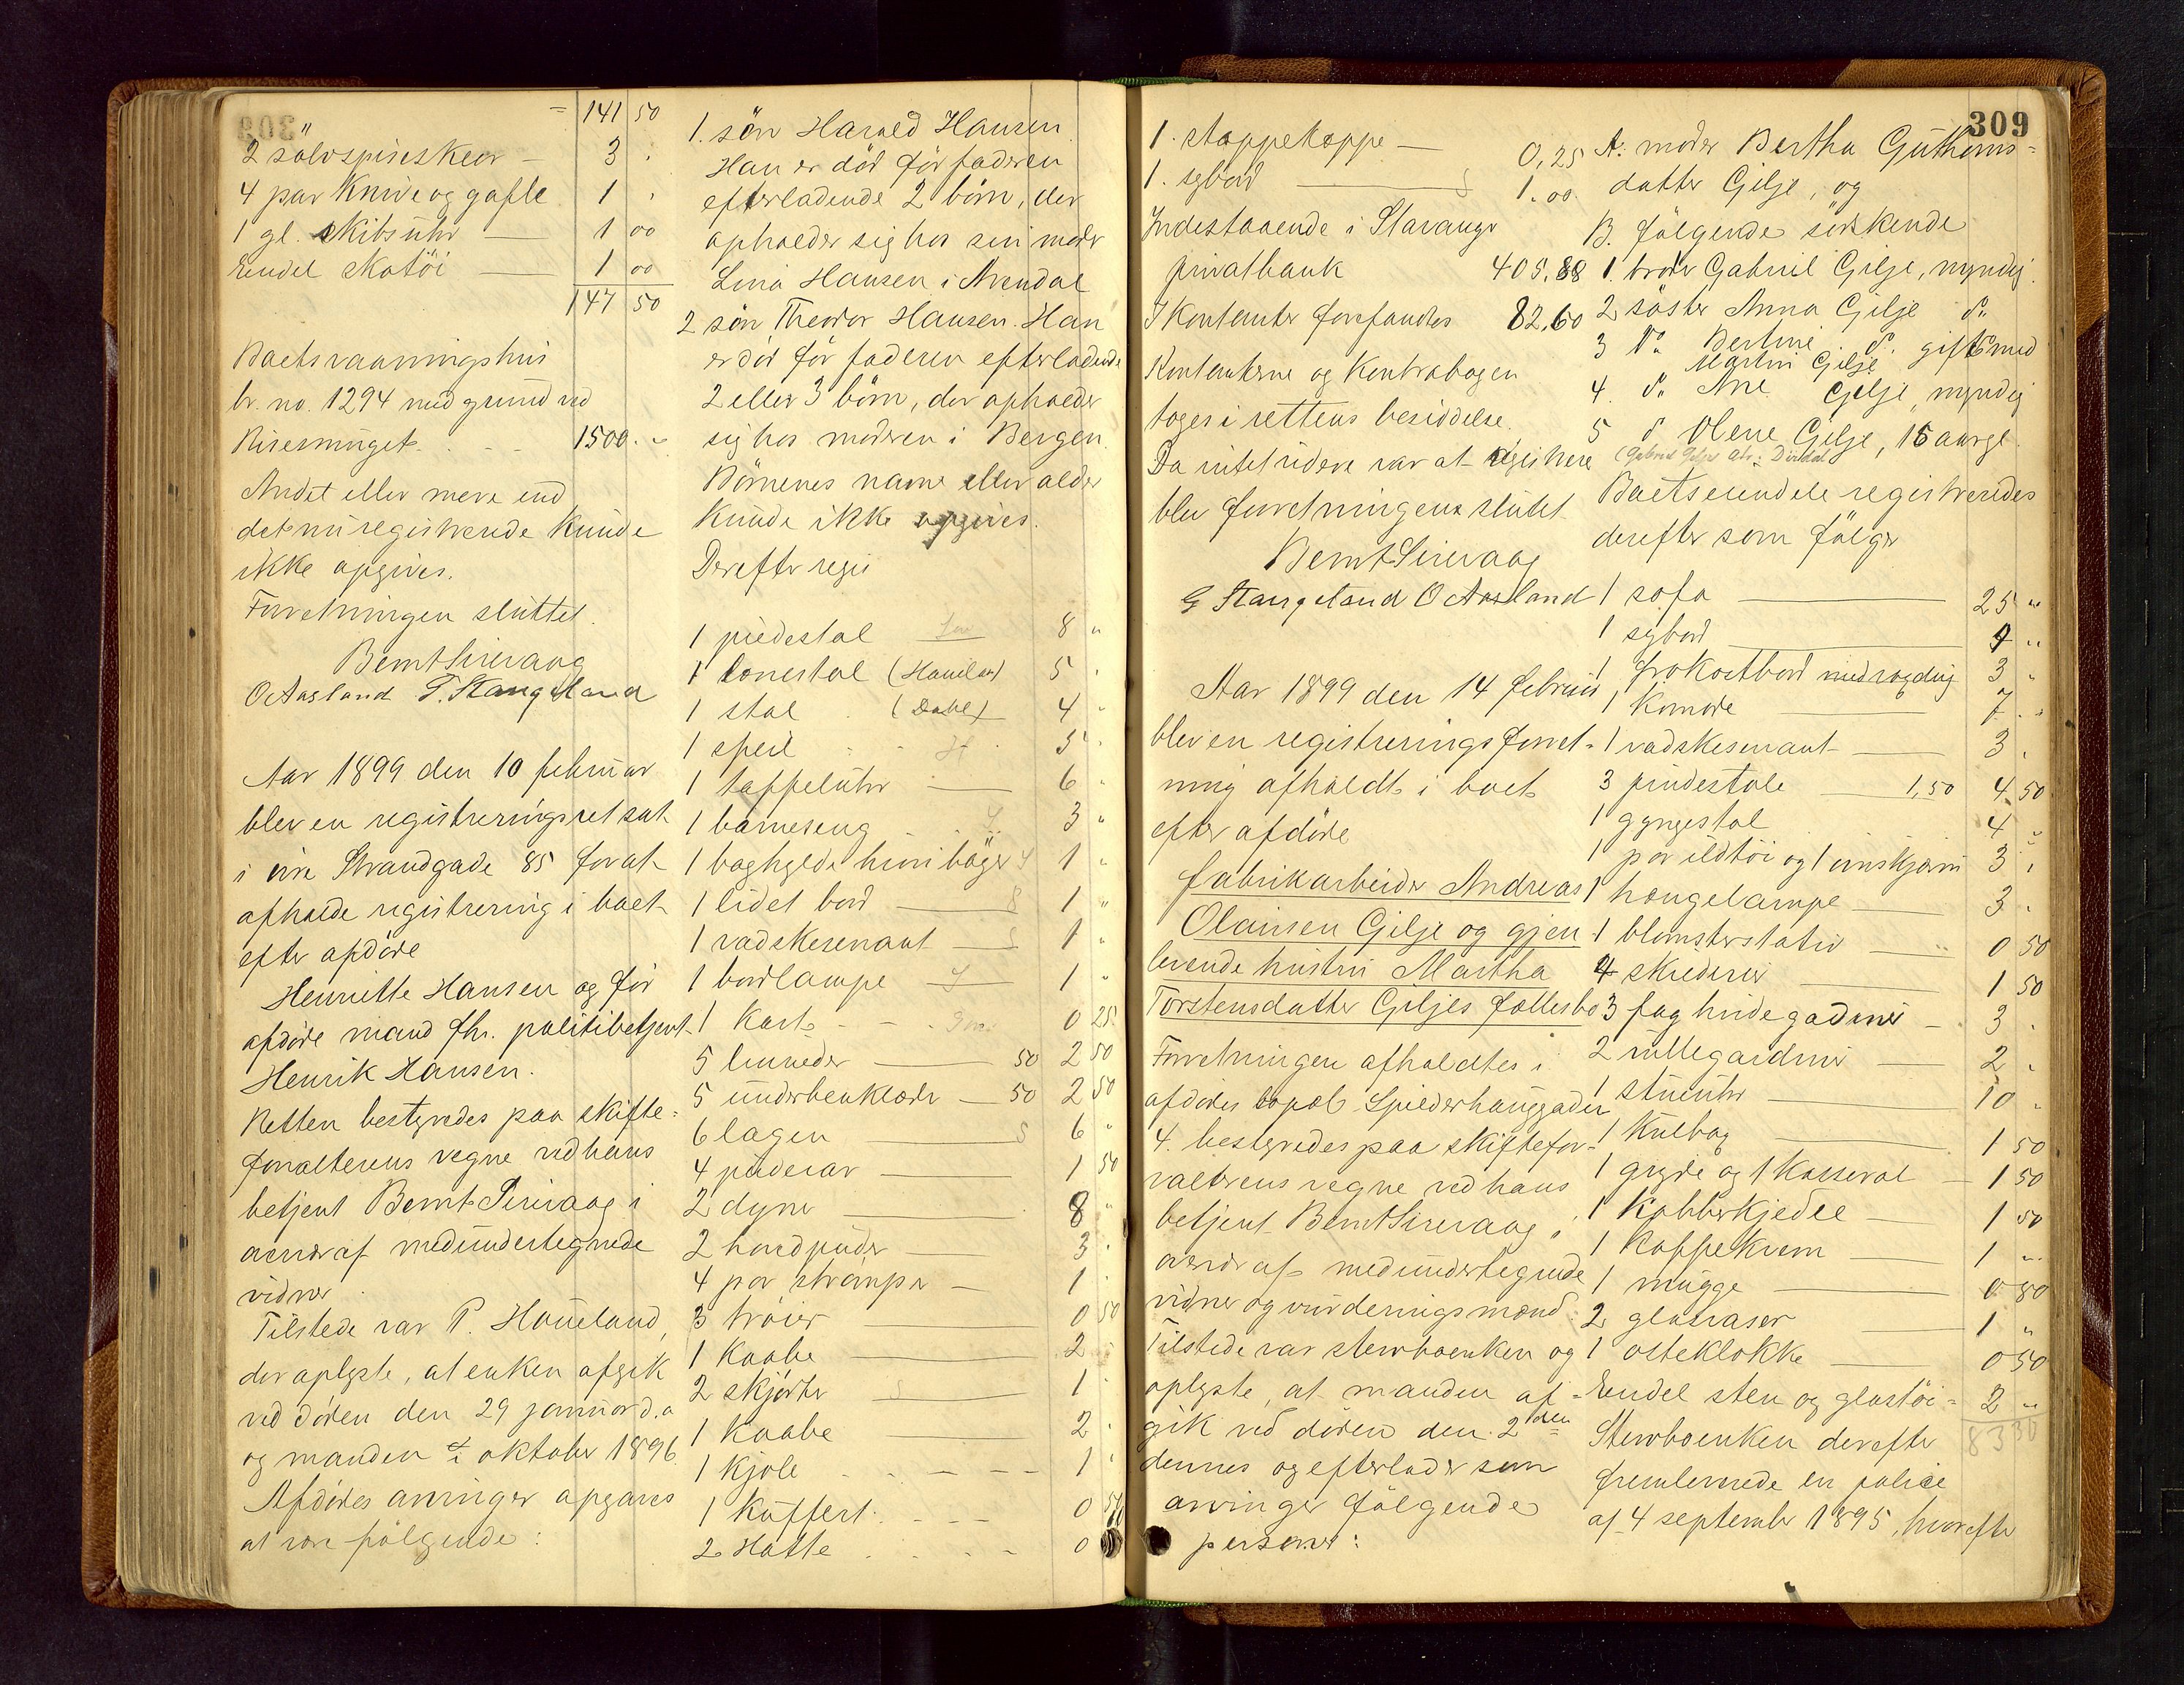 = 141 50
2 sölvspiseskeer - 3 "
4 par Knive og gafle 1 "
1 gl. skibsuhr — 1 00
Endel skotöi — 1 00
147 50
Boets vaaningshus
br. no. 1294 med grund ved
1500. "
Andet eller mere end
det nu registrerede kunde
ikke opgives.
Forretningen sluttet.
Bernt Sirevaag
O Aasland T. Stangeland
Aar 1899 den 10 februar
blev en registreringsret sat
i övre Strandgade 85 for at
afholde registrering i boet
efter afdöde
Henriette Hansen og för
afdöde mand fhv. politibetjent
Henrik Hansen.
Retten bestyredes paa skifte-
forvalterens vegne ved hans
betjent Bernt Sirevaag i
overvær af medundertegnede
vidner
Tilstede var P. Haueland,
der oplyste, at enken afgik
ved döden den 29 januar d.a
og manden i oktober 1896.
Afdödes arvinger opgaves
at være fölgende:
1. sön Harald Hansen.
Han er död för faderen
efterladende 2 börn, der
opholder sig hos sin moder
Lina Hansen i Arendal
2 sön Theodor Hansen. Han
er död för faderen efterladende
2 eller 3 börn, der opholder
sig hos moderen i Bergen.
Börnenes navne eller alder
kunde ikke opgives.
Derefter regis
1 piedestal 8 "
1 lænestol (Haueland) 5 "
1 stol (Dahl) 4 "
1 speil H 5 "
1 taffeluhr — 6 "
1 barneseng 3 "
1 boghylde hvori böger 1 "
1 lidet bord — 1 "
1 vadskeservant — 1 "
1 bordlampe 1 "
1 Kart 0 25
5 linneder — 50 2 50
5 underbenklæder — 50 2 50
6 lagen 6 "
4 pudevar — 1 50
2 dyner 8 "
2 hovedpuder 3 "
4 par strömper — 1 "
3 tröier 0 50
1 Kaabe 2 "
2 skjörter 1 "
1 Kaabe 2 "
1 Kjole 1 "
1 Kuffert 0 50
2 Hatte 0
309
1. stoppekoppe — 0,25
1. sybord — 1.00
Indestaaende i Stavanger
privatbank 405.88
I Kontanter forefandtes 82,60
Kontanterne og Kontrabogen
toges i rettens besiddelse.
Da intet videre var at registrere
blev forretningens slutet
Bernt Sirevaag
G Stangeland O Aasland
Aar 1899 den 14 februar
blev en registreringsforret-
ning afholdt i boet
efter afdöde
fabrikarbeider Andreas
Olausen Gilje og gjen-
levende hustru Martha
Torstensdatter Giljes fællesbo
Forretningen afholdtes i
afdödes bopæl Spilderhauggaden
4. bestyredes paa skiftefor-
valterens vegne ved hans
betjent Bernt Sirevaag i
overvær af medundertegnede
vidner og vurderingsmænd.
Tilstede var stervboenken og
oplyste, at manden af-
gik ved döden den 2den
dennes og efterlader som
arvinger fölgende
personer:
A: moder Bertha Guthorms-
datter Gilje, og
B. fölgende söskende
1. broder Gabriel Gilje, myndig.
2 söster Anna Gilje do.
3 do. Bertine do. gift med
Martin Gilje
4. do. Ane Gilje, myndig
5 do Olene Gilje, 15 aarge.
(Gabriel Gilje adr: Dirdal)
Boets eiendele registreredes
derefter som fölger
1 sofa — 25 "
1 sybord "
1 frokostbord med vogdug 3 "
1 Komode 7 "
1 vadskeservant — 3 "
3 pindestole — 1,50 4 50
1 gyngestol 4 "
1 par ildtöi og 1 ovnskjærm 3 "
1 hængelampe — 3 "
1 blomsterstativ — 0 50
4 skilderier 1 50
3 fag hvide gardiner — 3 "
2 rullegardiner — 2 "
1 stueuhr — 10 "
1 Kulbox 1 50
1 gryde og 1 Kasserol — 1 50
1 Kobberkjedel — 1 50
1 Kaffekvern — 1 "
1 mugge — 0 80
2 glasvaser — 1 "
1 osteklokke — 0 50
Endel sten og glastöi - 2 "
83 30
Stervboenken derefter
fremleverede en police
af 4 september 1895, hvorefter